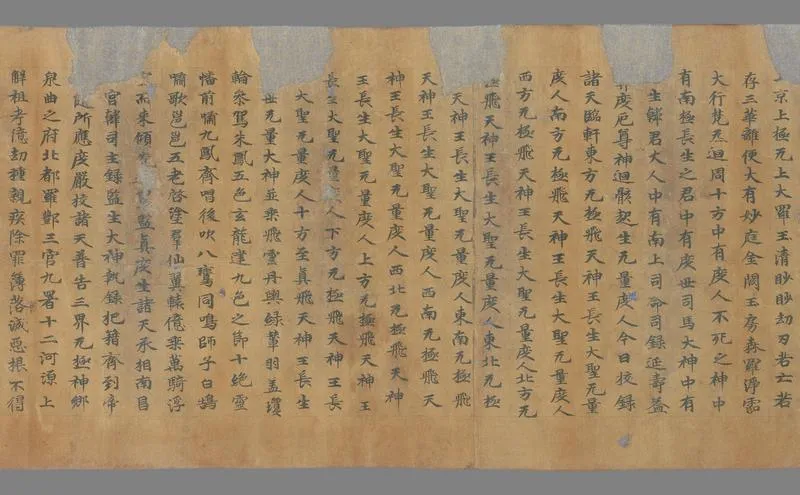 京上極无上大羅玉清眇眇劫刃若亡若
存三華離便大有妙庭金闕玉房森羅淨泓
大行梵炁迴周十方中有度人不死之神中
有南極長生之君中有度世司馬大神中有
生韓君大人中有南上司命司錄延壽益
度厄尊神迴骸起生无量度人今日挍録
諸天臨軒東方无極飛天神王長生大聖无量
度人南方无極飛天神王長生大聖无量度人
西方无極飛天神王長生大聖无量度人北方无
極飛天神王長生大聖无量度人東北无極
天神王長生大聖无量度人東南无極飛
天神王長生大聖无量度人西南无極飛天
神王長生大聖无量度人西北无極飛天神
王長生大聖无量度人上方无極飛天神王
長生大聖无量度人下方无極飛天神王長
大聖无量度人十方至真飛天神王長生
世无量大神並乘飛雲丹輿緑輦羽蓋瓊
輪參駕朱鳳五色玄龍建九色之節十絶靈
幡前嘯九鳳齊唱後吹八鸞同鳴師子白鵠
嘯歌邕邕五老啓塗羣仙翼轅億乘萬騎浮
空而來傾監真度生諸天丞相南昌
宮韓司主録監生大神執録把籍齊到帝
隨所應度嚴挍諸天普告三界无極神鄉
泉曲之府北都羅酆三官九署十二河源上
解祖考億劫種親疾除罪簿落滅惡根不得